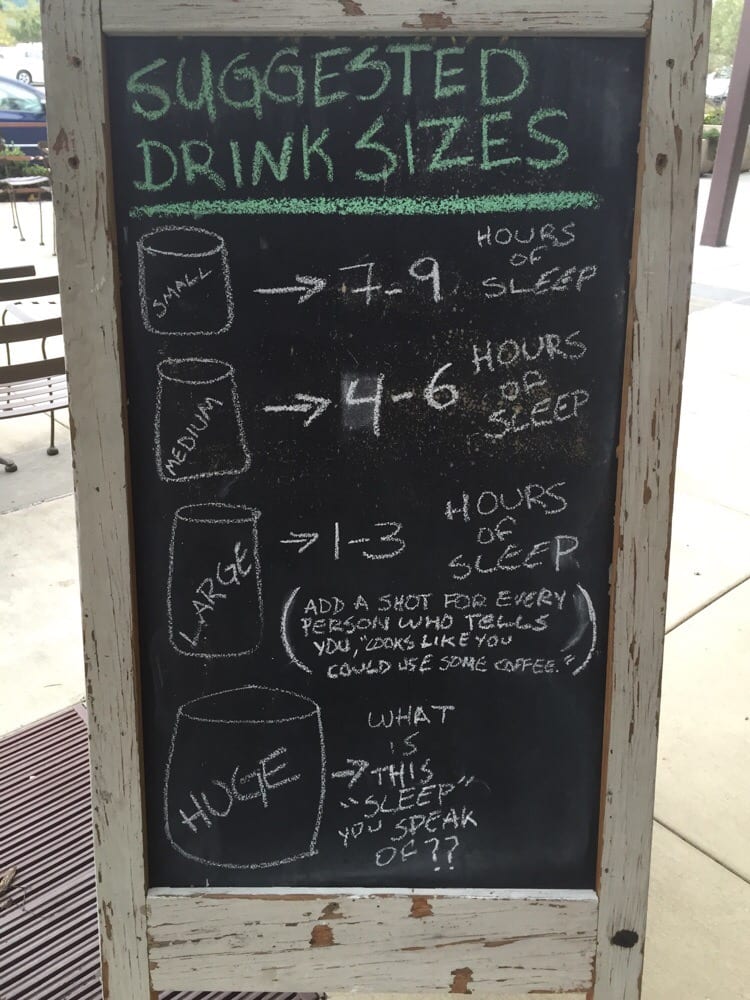 SUGGESTED
DRINK SIZES
SMALL → 7-9 HOURS
OF
SLEEP
MEDIUM → 4-6 HOURS
OF
SLEEP
LARGE → 1-3 HOURS
OF
SLEEP
(ADD A SHOT FOR EVERY
PERSON WHO TELLS
YOU, "LOOKS LIKE YOU
COULD USE SOME COFFEE.")
HUGE → WHAT
IS
THIS
"SLEEP"
YOU SPEAK
OF??